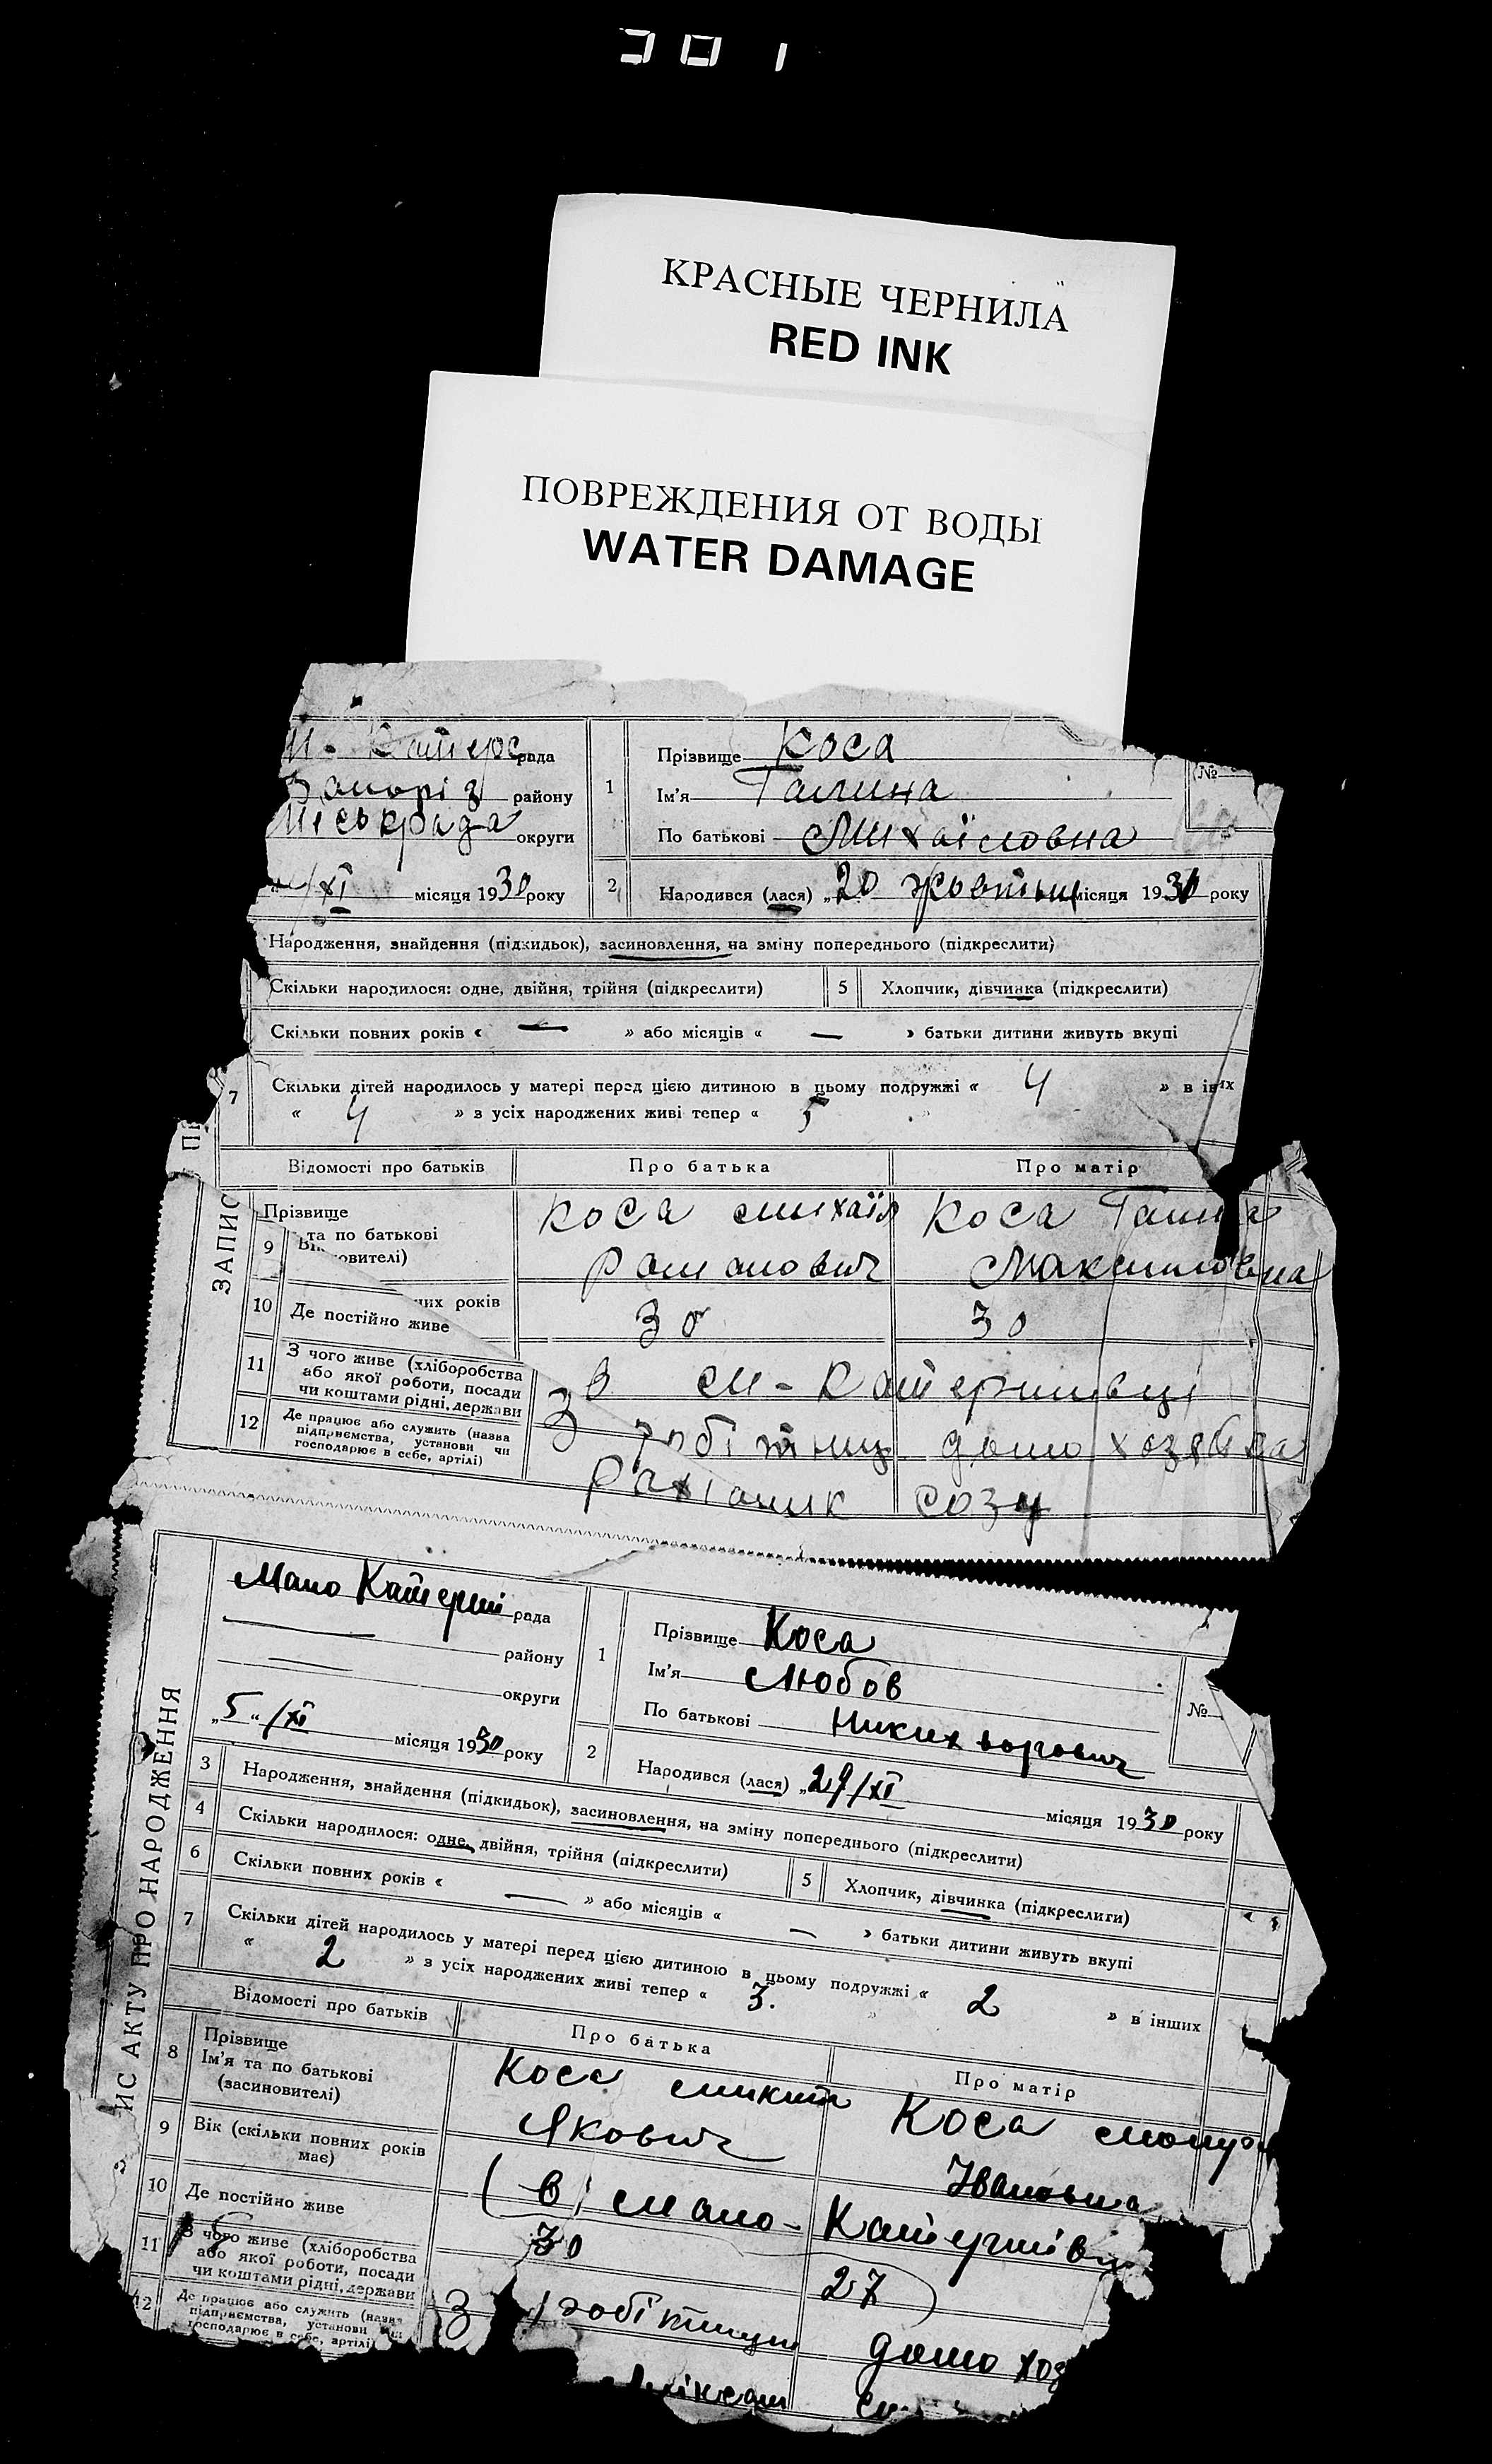 301
КРАСНЫЕ ЧЕРНИЛА
RED INK
ПОВРЕЖДЕНИЯ ОТ ВОДЫ
WATER DAMAGE
М - Катерс рада
Запоріз району
Міськрада округи
/XI місяця 1930 року
1
Прізвище Коса
Ім'я Галина
По батькові Михаіловна
№
2
Народився (лася) „20 жовтня місяця 1930 року
Народження, знайдення (підкидьок), засиновлення, на зміну попереднього (підкреслити)
Скільки народилося: одне, двійня, трійня (підкреслити)
5 Хлопчик, дівчинка (підкреслити)
Скільки повних років « — » або місяців « — » батьки дитини живуть вкупі
7 Скільки дітей народилось у матері перед цією дитиною в цьому подружжі « 4 » в інших
« 4 » з усіх народжених живі тепер « 5
Відомості про батьків Про батька Про матір
ЗАПИС
Прізвище Коса Михаїл Коса
та по батькові
9 овителі) Романович Максимовна
них років 30 30
10 Де постійно живе в М - Катеринівці
11 З чого живе (хліборобства
або якої роботи, посади
чи коштами рідні, держави
З робітниц домохозяйка
12 Де працює або служить (назва
підприємства, установи чи
господарює в себе, артілі)
созу
ИС АКТУ ПРО НАРОДЖЕННЯ
Мало Катерин рада
— району
— округи
„5“/XI місяця 1930 року
1
Прізвище Коса
Ім'я Любов
По батькові
№
2
Народився (лася) „29/XI місяця 1930 року
3 Народження, знайдення (підкидьок), засиновлення, на зміну попереднього (підкреслити)
4 Скільки народилося: одне, двійня, трійня (підкреслити)
5 Хлопчик, дівчинка (підкреслити)
6 Скільки повних років « — » або місяців « — » батьки дитини живуть вкупі
7 Скільки дітей народилось у матері перед цією дитиною в цьому подружжі « 2 » в інших
« 2 » з усіх народжених живі тепер « 3.
Відомості про батьків Про батька Про матір
8 Прізвище
Ім'я та по батькові
(засиновителі)
Коса Микит Коса
Якович Івановна
9 Вік (скільки повних років
має)
(в) Мало - Катеринівц
10 Де постійно живе 30 27
11 З чого живе (хліборобства
або якої роботи, посади
чи коштами рідні, держави
З робітниц домохоз
12 Де працює або служить (назва
підприємства, установи чи
господарює в себе, артілі)